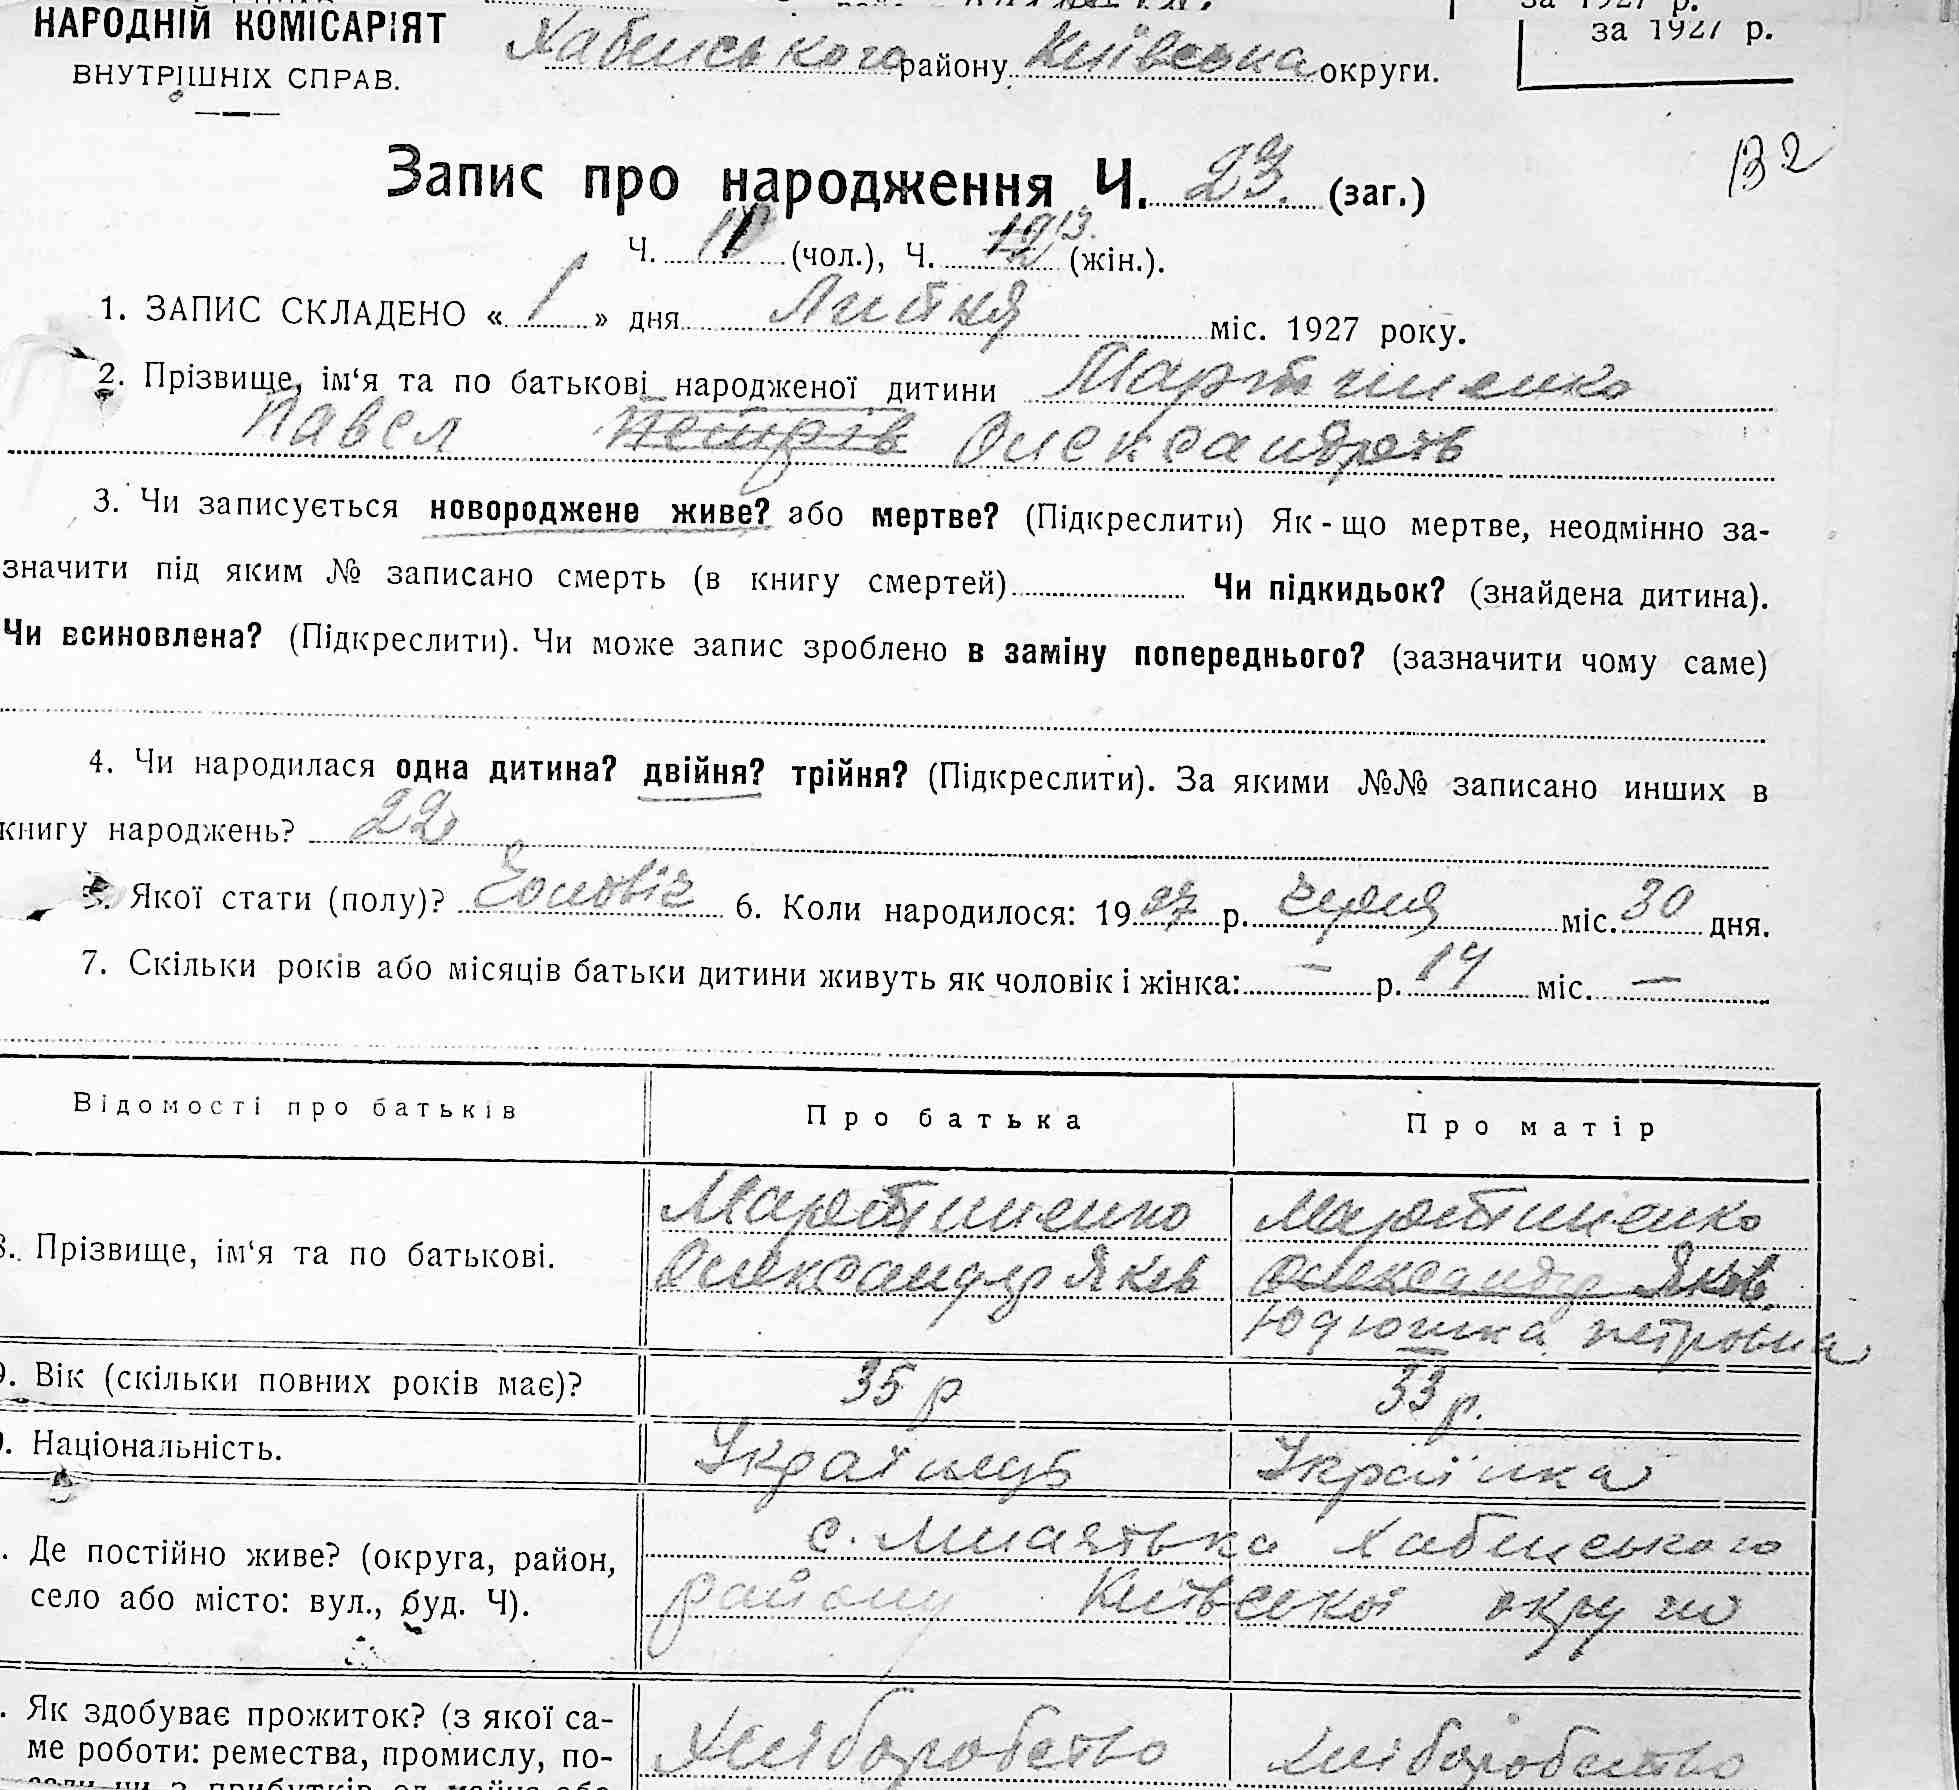 НАРОДНІЙ КОМІСАРІЯТ
ВНУТРІШНІХ СПРАВ.
Хабенського району Київська округи.
за 1927 р.
за 1927 р.
132
Запис про народження Ч. 23. (заг.)
Ч. (чол.), Ч. 12 13. (жін.).
1. ЗАПИС СКЛАДЕНО « 1 » дня Липня міс. 1927 року.
2. Прізвище, ім‘я та по батькові народженої дитини Мартиненко
Павел Петрів Олександров
3. Чи записується новороджене живе? або мертве? (Підкреслити) Як-що мертве, неодмінно за-
значити під яким № записано смерть (в книгу смертей) Чи підкидьок? (знайдена дитина).
Чи всиновлена? (Підкреслити). Чи може запис зроблено в заміну попереднього? (зазначити чому саме)
4. Чи народилася одна дитина? двійня? трійня? (Підкреслити). За якими №№ записано инших в
книгу народжень? 22
5. Якої стати (полу)? Чоловіч 6. Коли народилося: 1927 р. червня міс. 30 дня.
7. Скільки років або місяців батьки дитини живуть як чоловік і жінка: — р. 14 міс. —
Відомості про батьків Про батька Про матір
8. Прізвище, ім‘я та по батькові.
Мартиненко Мартиненко
Олександр Яков Олександр Яков.
петровна
9. Вік (скільки повних років має)? 35 р 33 р.
. Національність. Українець Українка
. Де постійно живе? (округа, район,
село або місто: вул., буд. Ч).
с. Хабенського
району Київської округи
. Як здобуває прожиток? (з якої са-
ме роботи: ремества, промислу, по-
Хліборобство Хліборобство